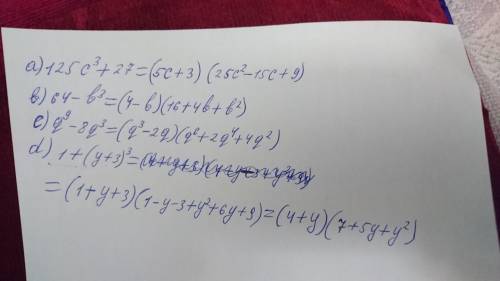 a) 125c³+27=(5c+3)(25c²-15c+9)
b) 64-b³=(4-b)(16+4b+b²)
c) q⁹-8q³=(q³-2q)(q⁶+2q⁴+4q²)
d) 1+(y+3)³=
=(1+y+3)(1-y-3+y²+6y+9)=(4+y)(7+5y+y²)